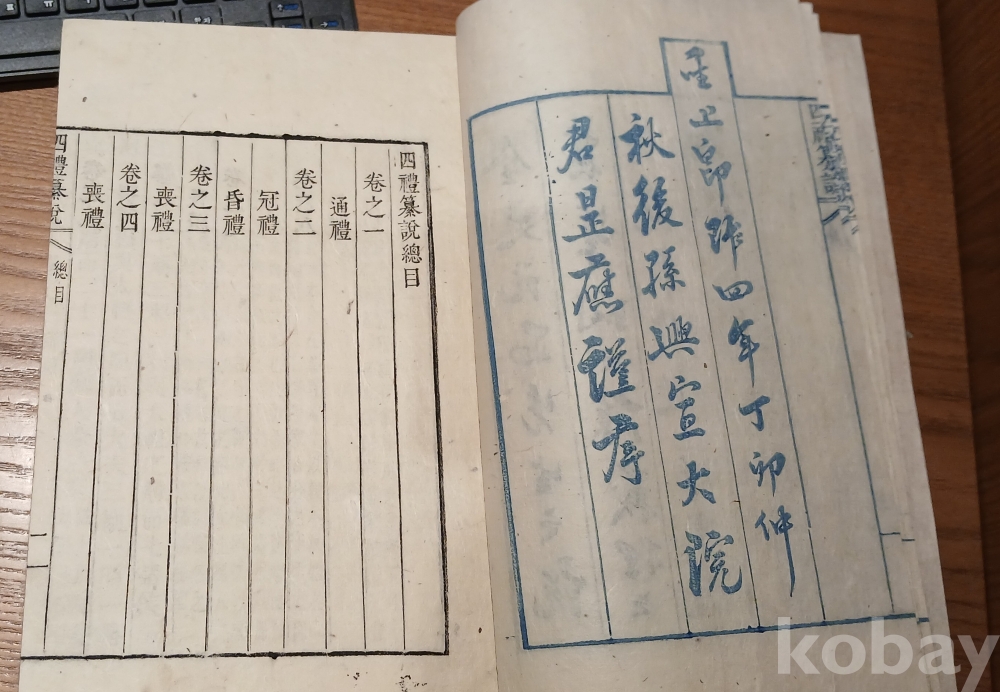 聖上卽阼四年丁卯仲
秋後孫興宣大院
君昰應謹序
四禮纂說總目
卷之一
通禮
卷之二
冠禮
昏禮
卷之三
喪禮
卷之四
喪禮
四禮纂說 總目
kobay